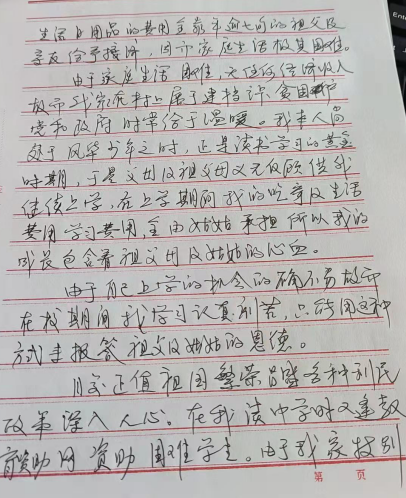 生活日用品的费用全靠年逾七旬的祖父及
亲友给予接济，因而家庭生活极其困难。
由于家庭生活困难，无任何经济收入
故而我家在村上属于建档评贫困户
党和政府时常给于温暖。我本人尚
处于风华少年之时，正是读书学习的黄金
时期，于是父母及祖父母义无反顾供我
继续上学，在上学期间我的吃穿及生活
费用学习费用，全由姑姑承担所以我的
成长包含着祖父母及姑姑的心血。
由于自己上学的机会的确不易故而
在校期间我学习认真刻苦，只能用这种
方式来报答祖父及姑姑的恩德。
目前正值祖国繁荣昌盛各种利民
政策深入人心。在我读中学时又逢教
育资助网资助困难学生。由于我家特别
第 页